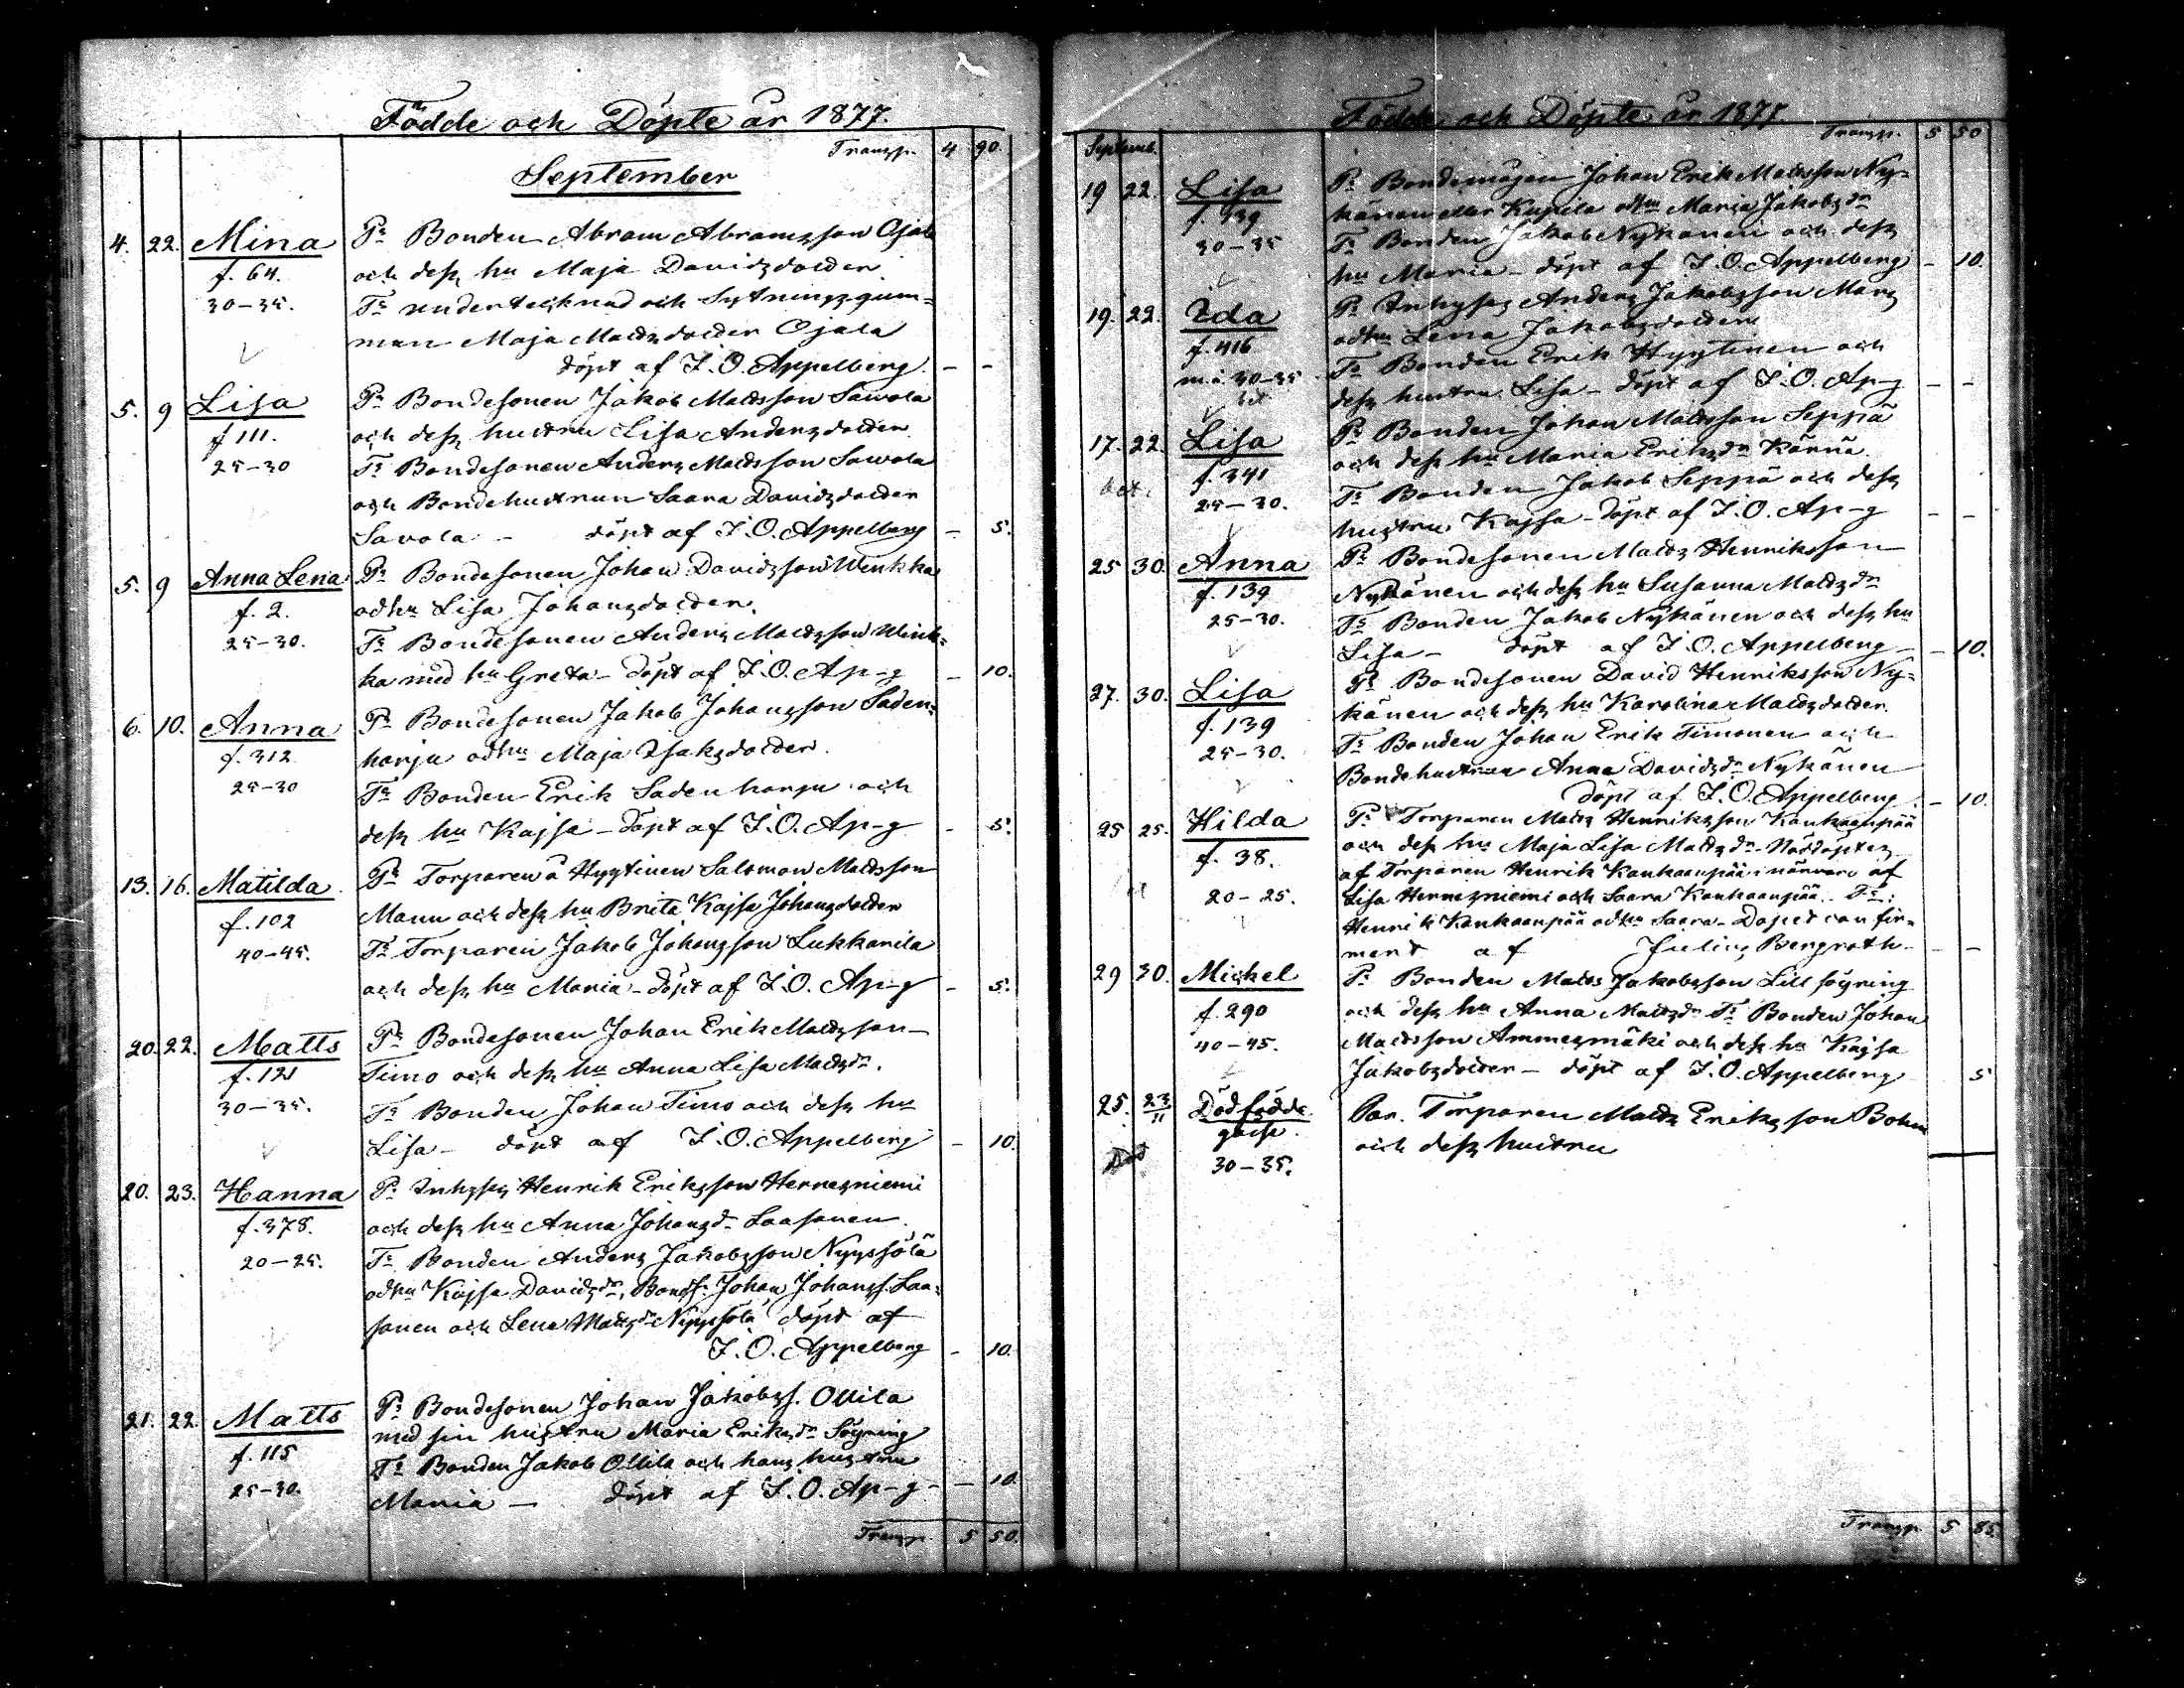 Födde och Döpte år 1877.
Transp. 4 90.
September
4. 22. Mina Pr Bonden Abram Abramsson Ojala
f. 64. och dess hu Maja Davidsdotter
30-35. Tr undertecknad och Sytningsgum-
man Maja Mattsdotter Ojala
döpt af I. O. Appelberg. - -
5. 9 Lisa Pr Bondesonen Jakob Mattsson Sawola
f 111. och dess hustru Lisa Andersdotter
25-30 Tr Bondesonen Anders Mattsson Sawola
och Bondehustrun Saara Davidsdotter
Savola - döpt af I. O. Appelberg - 5.
5. 9 Anna Lena Pr Bondesonen Johan Davidsson Winkka
f. 2. odhu Lisa Johansdotter.
25-30. Tr Bondesonen Anders Mattsson Wink-
ka med hu Greta - döpt af I. O. Ap-g - 10.
6. 10. Anna Pr Bondesonen Jakob Johansson Saden-
f. 312 harju odhu Maja Isaksdotter.
25-30 Tr Bonden Erik Sadenharju och
dess hu Kajsa - döpt af I. O. Ap-g - 5.
13. 16. Matilda Pr Torparen å Hyytinen Salomon Mattsson
f. 102 Mann och dess hu Brita Kajsa Johansdotter
40-45. Tr Torparen Jakob Johansson Lukkarila
och dess hu Maria - döpt af I. O. Ap-g - 5.
20. 22. Matts Pr Bondesonen Johan Erik Mattsson
f. 121 Timo och dess hu Anna Lisa Mattsdr.
30-35. Tr Bonden Johan Timo och dess hu
Lisa - döpt af I. O. Appelberg - 10.
20. 23. Hanna Pr Inhyses Henrik Eriksson Hernesniemi
f. 378. och dess hu Anna Johansdr Laasanen
20-25. Tr Bonden Anders Jakobsson Nyyssölä
odhu Kajsa Davidsdr, Bondes. Johan Johanss. Laa-
sanen och Lena Mattsdr Nyyssölä döpt af
I. O. Appelberg - 10.
21. 22. Matts Pr Bondesonen Johan Jakobss. Ollila
f. 115 med sin hustru Maria Eriksdr Söyring
25-30. Tr Bonden Jakob Ollila och hans hustru
Maria - döpt af I. O. Ap-g - - 10.
Transp. 5 50.
Födde och Döpte år 1877
Septemb. Transp. 5 50
19 22. Lisa Pr Bondemågen Johan Erik Mattsson Ny-
f. 139 känen eller Kupila odhu Maria Jakobsdr
30-35 Tr Bonden Jakob Nykänen och dess
hu Maria - döpt af I. O. Appelberg - 10.
19. 22. Ida Pr Inhyses Anders Jakobsson Mars
f. 416 odhu Lena Jakobsdotter
m. å. 30-35 Tr Bonden Erik Hyytinen och
dess hustru Lisa - döpt af I. O. Ap-g - -
17. 22. Lisa Pr Bonden Johan Mattsson Seppä
f. 341 och dess hu Maria Eriksdr Kärnä.
25-30. Tr Bonden Jakob Seppä och dess
hustru Kajsa - döpt af I. O. Ap-g - -
25 30. Anna Pr Bondesonen Matts Henriksson
f. 139 Nykänen och dess hu Susanna Mattsdr
25-30. Tr Bonden Jakob Nykänen och dess hu
Lisa - döpt af I. O. Appelberg - - 10.
27. 30. Lisa Pr Bondesonen David Henriksson Ny-
f. 139 känen och dess hu Karolina Mattsdotter.
25-30. Tr Bonden Johan Erik Timonen och
Bondehustrun Anna Davidsdr Nykänen
döpt af I. O. Appelberg. - 10.
25 25. Hilda Pr Torparen Matts Henriksson Kankaanpää
f. 38. och dess hu Maja Lisa Mattsdr - Nöddöptes
af Torparen Henrik Kankaanpää i närvaro af
20-25. Lisa Hernesniemi och Saara Kankaanpää. Tr:
Henrik Kankaanpää odhu Saara - Dopet confir-
meradt af Julius Bergroth - -
29 30. Mickel Pr Bonden Matts Jakobsson Lill söyring
f. 290 och dess hu Anna Mattsdr Tr Bonden Johan
40-45. Mattsson Ammesmäki och dess hu Kajsa
Jakobsdotter - döpt af I. O. Appelberg 5
25. 23/11 Dödfödde Par. Torparen Matts Eriksson Bohm
gosse. och dess hustru
Död 30-35.
Transp 5 85